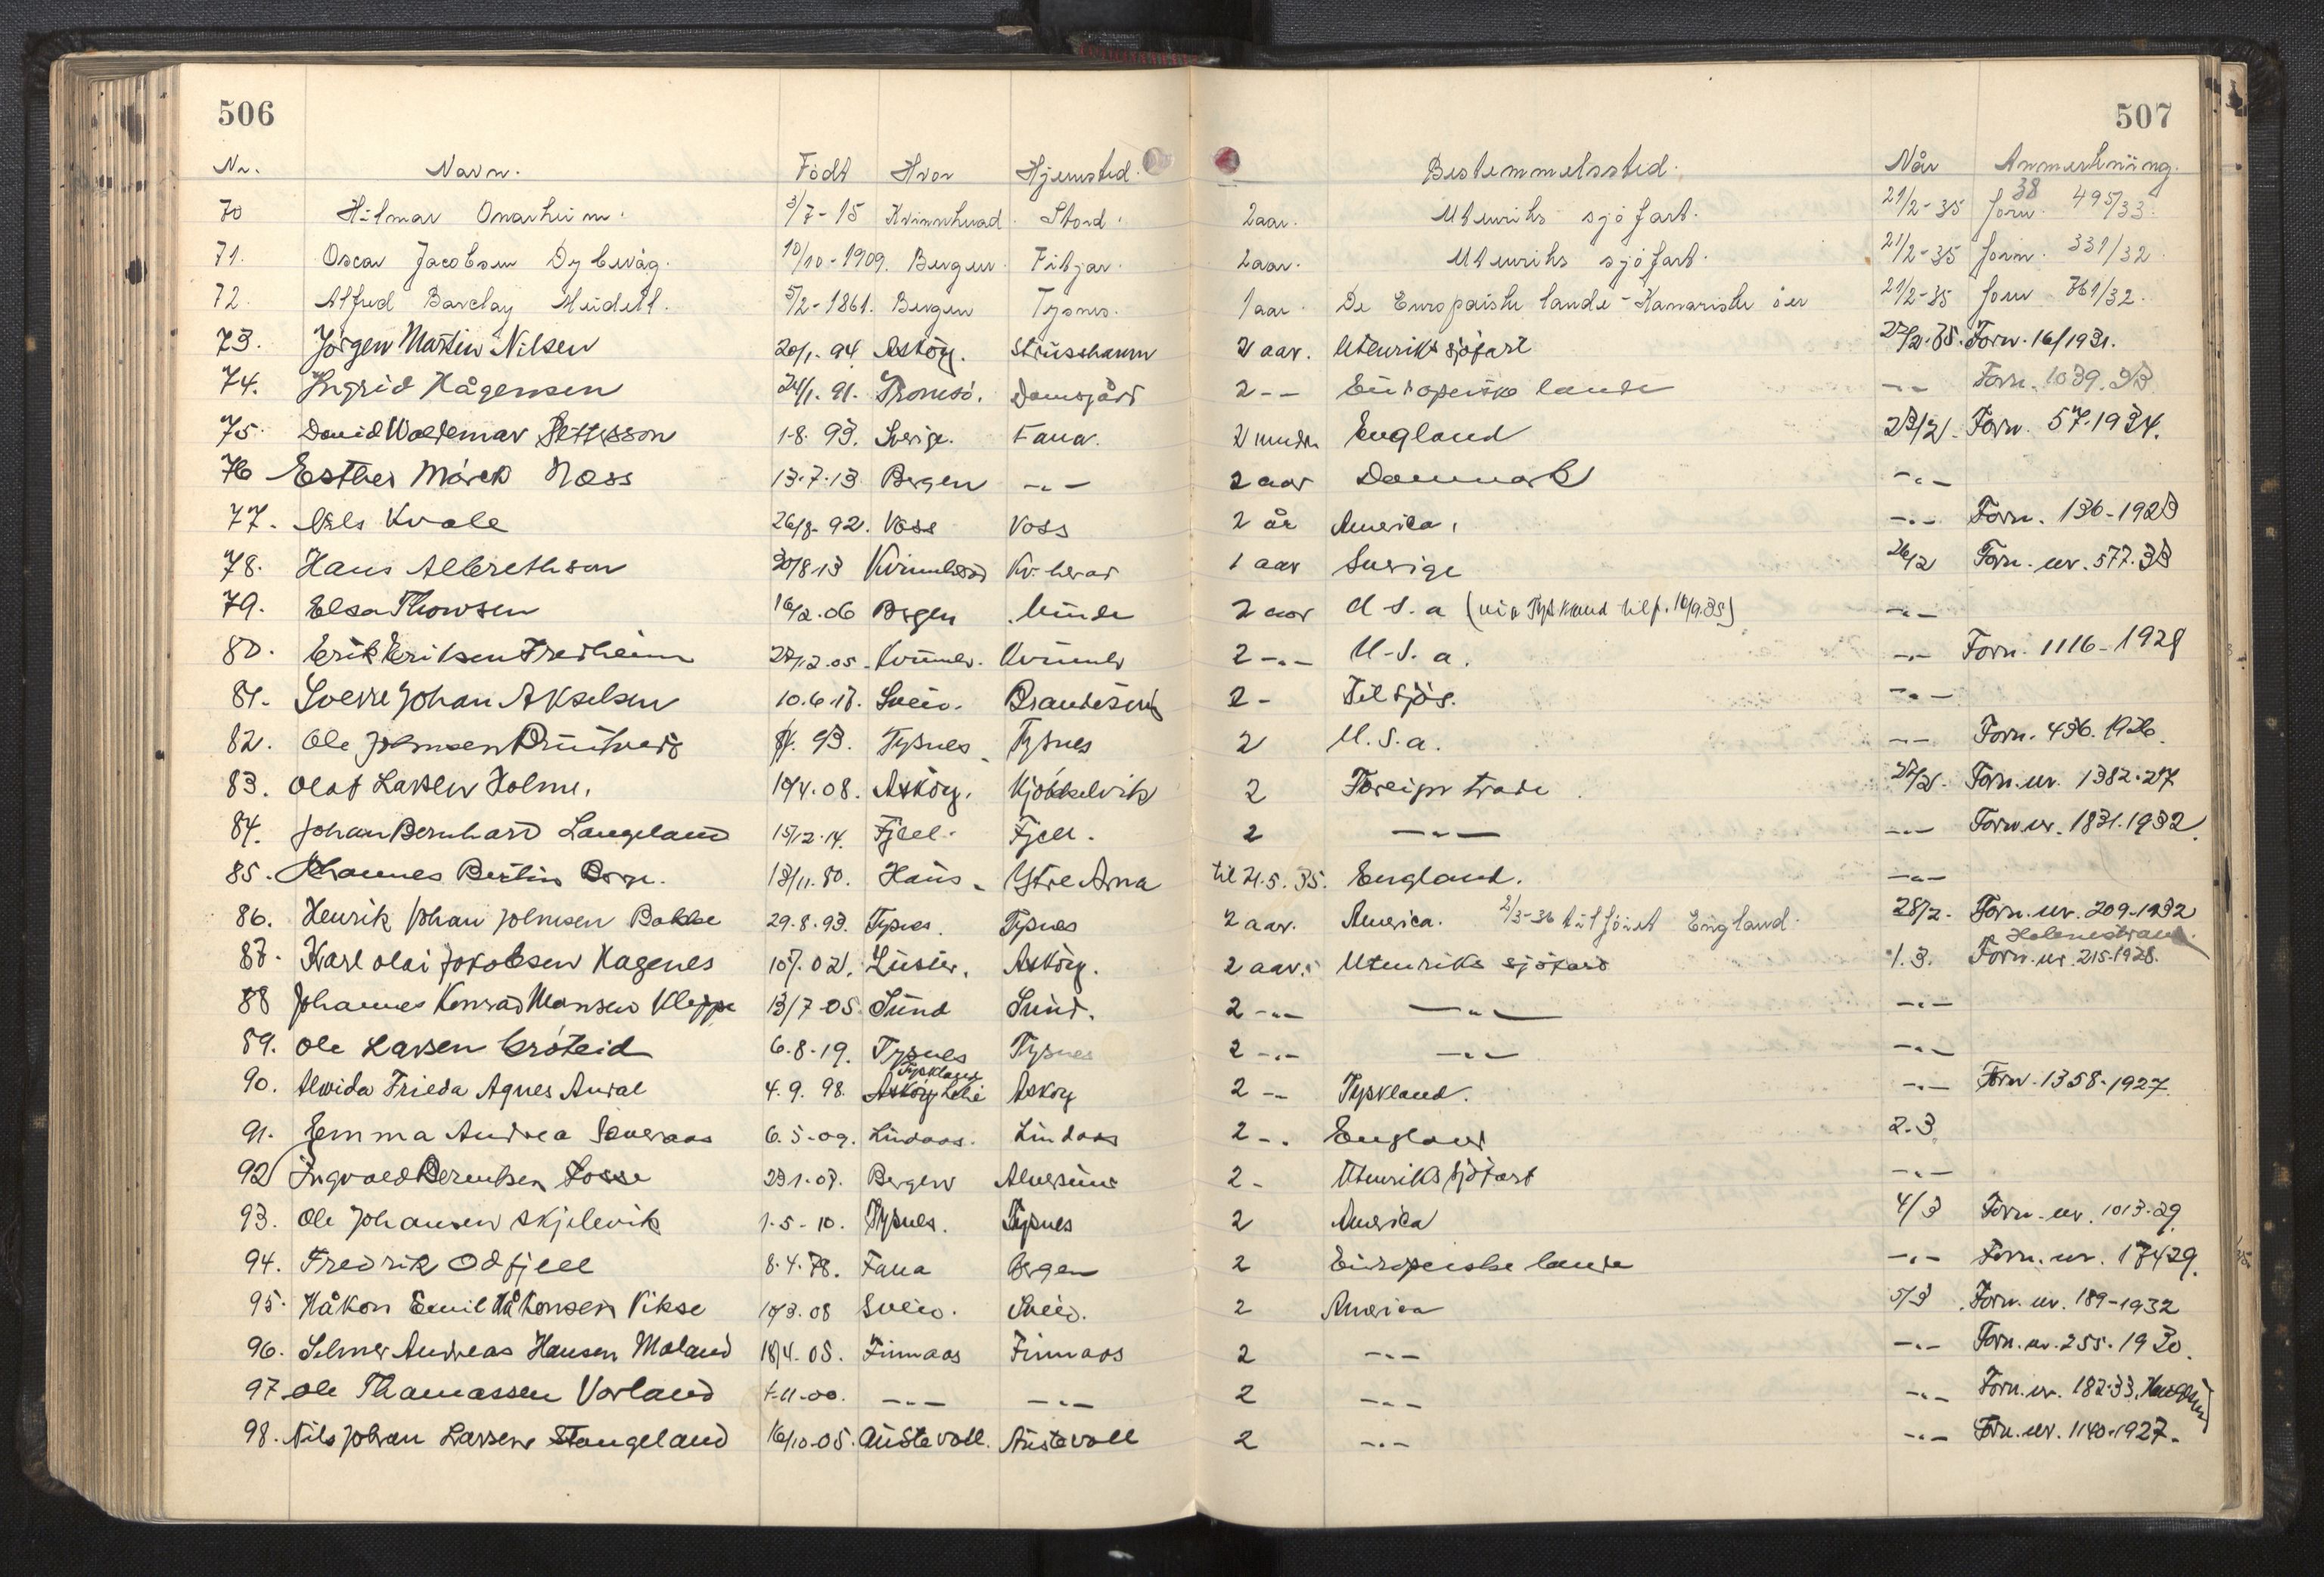 506
507
Nr. Navn. Födt Hvor Hjemsted. Bestemmelsssted. Når Anmerkning.
70 Hilmar Onarheim. 3/7-15 Kvinnherad. Stord. 2 aar. Utenriks sjöfart. 21/2-35 Forn. 38 495/33.
71. Oscar Jacobsen Dybevåg. 10/10-1909. Bergen. Fitjar. 2 aar. Utenriks sjöfart. 21/2-35 Forn. 331/32.
72. Alfred Barclay 5/2-1861. Bergen Tysnes. 1 aar. De Europæiske lande - Kanariske öer 21/2-35 Forn 761/32.
73. Jörgen Martin Nilsen 20/1. 94 Asköy. Strusshamn 2 aar. Utenriks sjöfart 22/2.35. Forn. 16/1931.
74. Ingrid Hågensen 24/1. 91. Tromsö. Damsgård 2 -- Europeiske lande -- Forn. 1039. 33
75. David Waldemar Pettersson 1-8. 93. Sverige. Fana. 2 mndr. England 23/2. Forn. 57.1934.
76 Esther Mörck Næss 13.7.13 Bergen -"- 2 aar Danmark -"-
77. Nils Kvale 26/8-92. Voss Voss 2 år America. -"- Forn. 136-1923
78. Hans Albrethson 30/8-13 Kvinnherad Kv.herad 1 aar Sverige 26/2 Forn. nr. 577.33
79. Elsa Thowsen 16/2.06 Bergen Minde 2 aar U.S.a (via Tyskland tilf. 10/9.35) -"-
80. Erik Eriksen Fredheim 27/12.05. Kvinnh. Kvinnh 2 -"- U.S.a. -"- Forn. 1116-1928
81. Sverre Johan Akselsen 10.6.17. Sveio. Brandesund 2 - Tilsjös. -"-
82. Ole Johnsen 93. Tysnes Tysnes 2 U.S.a. -"- Forn. 436. 1926.
83. Olaf Larsen Holme. 19/4.08. Asköy. Kjökkelvik 2 Foreign trade. 27/2. Forn. nr. 1382.27
84. Johan Bernhard Langeland 15/12.14. Fjell. Fjell. 2 -"- -"- Forn. nr. 1831.1932.
85. Johannes Bertin Berge. 13/11.80. Haus. Ytre Arna til 21.5.35. England. -"-
86. Henrik Johan Johnsen Bakke 29.8.93. Tysnes. Tysnes 2 aar. America. 2/3-36 tilföiet England. 28/2. Forn. nr. 209-1932
87. Karl Olai Jakobsen Hagenes 10/7.02. Luster. Asköy. 2 aar. Utenriks sjöfart 1.3. Forn. nr. 215-1928.
88 Johannes Konrad Monsen Kleppe 13/7-05. Sund Sund. 2 -"- -"- -"-
89. Ole Larsen Gröteid 6-8-19. Tysnes Tysnes 2 -"- -"- -"-
90. Alvida Frieda Agnes Aural 4. 9. 98. Asköy Tyskland Asköy 2 -- Tyskland. -"- Forn. 1358-1927.
91. Emma Andrea Soveraas 6. 5-09. Lindaas. Lindaas 2 -. England 2.3.
92 Ingvald Berentsen Fosse 23.1.07. Bergen Alversund 2 - Utenriks sjöfart -"-
93. Ole Johansen Skjelevik 1-5-10. Tysnes. Tysnes 2 America 4/3 Forn. nr. 1013.29.
94. Fredrik Odfjell 8. 4. 78. Fana Bergen 2 Europeiske lande -"- Forn. nr. 17429.
95. Håkon Emil Håkonsen Vikse 10/3. 08 Sveio. Sveio. 2 America 5/3 Forn. nr. 189-1932
96. Selmer Andreas Hansen Moland 18/4. 05. Finnaas Finnaas 2 -"- -"- Forn. nr. 255. 1930.
97. Ole Thomassen Vorland 7-11-00. -"- -"- 2 -"- -"- Forn. nr. 182.33. Haugesund
98. Nils Johan Larsen Stangeland 16/10-05. Austevoll. Austevoll 2 -"- -"- Forn. nr. 1140-1927.